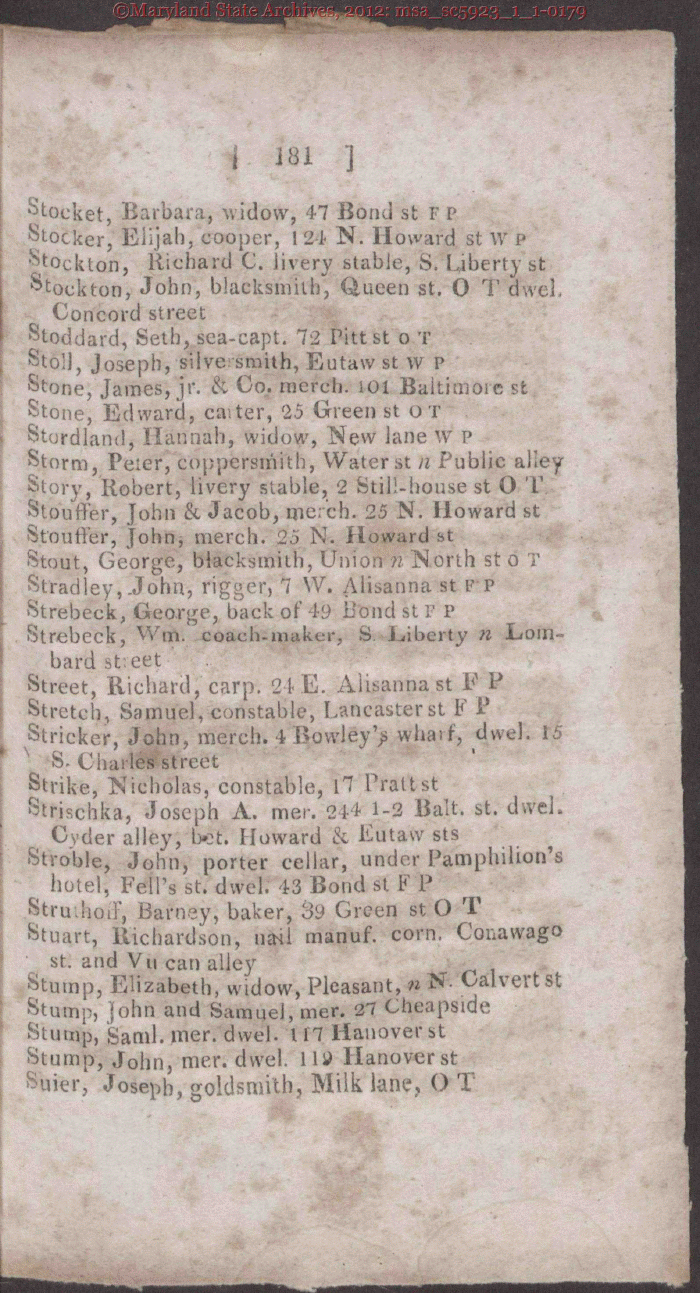 ©Maryland State Archives, 2012: msa_sc5923_1_1-0179
[ 181 ]
Stocket, Barbara, widow, 47 Bond st F P
Stocker, Elijah, cooper, 124 N. Howard st W P
Stockton, Richard C. livery stable, S. Liberty st
Stockton, John, blacksmith, Queen st. O T dwel.
Concord street
Stoddard, Seth, sea-capt. 72 Pitt st O T
Stoll, Joseph, silversmith, Eutaw st W P
Stone, James, jr. & Co. merch. 101 Baltimore st
Stone, Edward, carter, 25 Green st O T
Stordland, Hannah, widow, New lane W P
Storm, Peter, coppersmith, Water st n Public alley
Story, Robert, livery stable, 2 Still-house st O T
Stouffer, John & Jacob, merch. 25 N. Howard st
Stouffer, John, merch. 25 N. Howard st
Stout, George, blacksmith, Union n North st O T
Stradley, John, rigger, 7 W. Alisanna st F P
Strebeck, George, back of 49 Bond st F P
Strebeck, Wm. coach-maker, S. Liberty n Lom-
bard street
Street, Richard, carp. 24 E. Alisanna st F P
Stretch, Samuel, constable, Lancaster st F P
Stricker, John, merch. 4 Bowley's wharf, dwel. 15
S. Charles street
Strike, Nicholas, constable, 17 Pratt st
Strischka, Joseph A. mer. 244 1-2 Balt. st. dwel.
Cyder alley, bet. Howard & Eutaw sts
Stroble, John, porter cellar, under Pamphilion's
hotel, Fell's st. dwel. 43 Bond st F P
Struthoff, Barney, baker, 39 Green st O T
Stuart, Richardson, nail manuf. corn. Conawago
st. and Vulcan alley
Stump, Elizabeth, widow, Pleasant, n N. Calvert st
Stump, John and Samuel, mer. 27 Cheapside
Stump, Saml. mer. dwel. 117 Hanover st
Stump, John, mer. dwel. 119 Hanover st
Suier, Joseph, goldsmith, Milk lane, O T